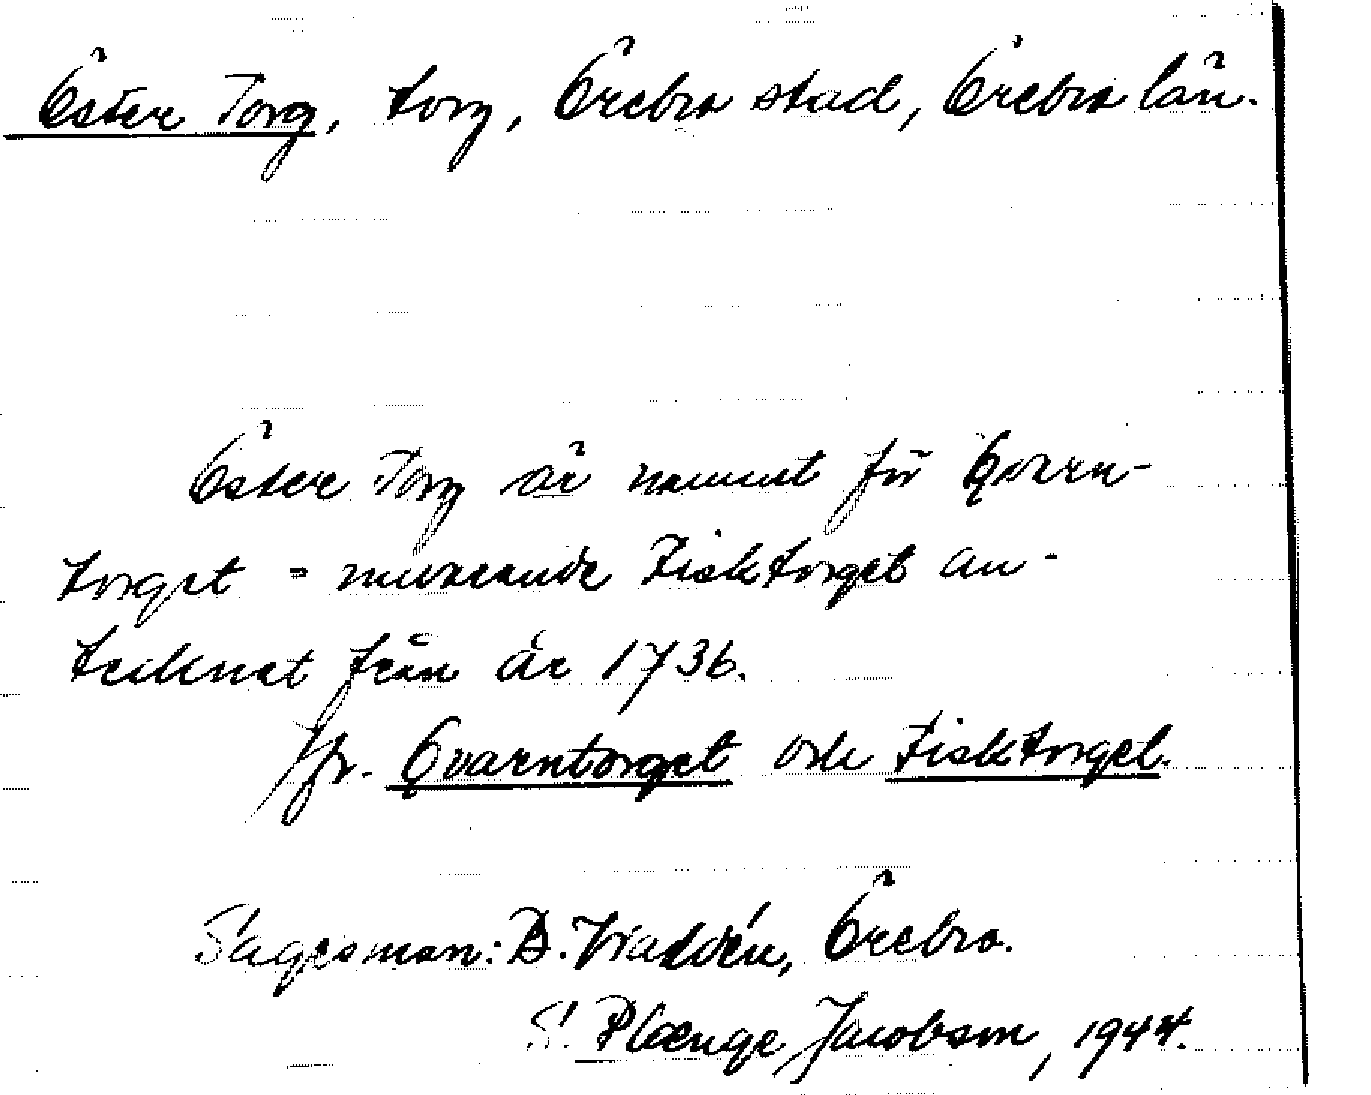 Öster Torg, torg, Örebro stad, Örebro län.
Öster Torg är namnet för Qvarn-
torget - nuvarande Fisktorget an-
tecknat från år 1736.
Jfr. Qvarntorget och Fisktorget.
Sagesman: B. Waddén, Örebro.
S. Plænge Jacobson, 1944.